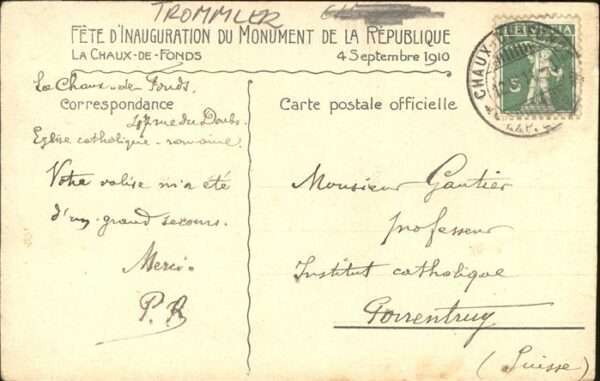 TROMMLER
FÊTE D'INAUGURATION DU MONUMENT DE LA RÉPUBLIQUE
LA CHAUX-DE-FONDS 4 Septembre 1910
La Chaux-de-Fonds.
Correspondance
47 rue du Doubs.
Eglise catholique-romaine.
Votre valise m'a été
d'un grand secours.
Merci.
P. R
Carte postale officielle
HELVETIA
5
CHAUX
Monsieur Gautier
professeur
Institut catholique
Porrentruy
(Suisse)